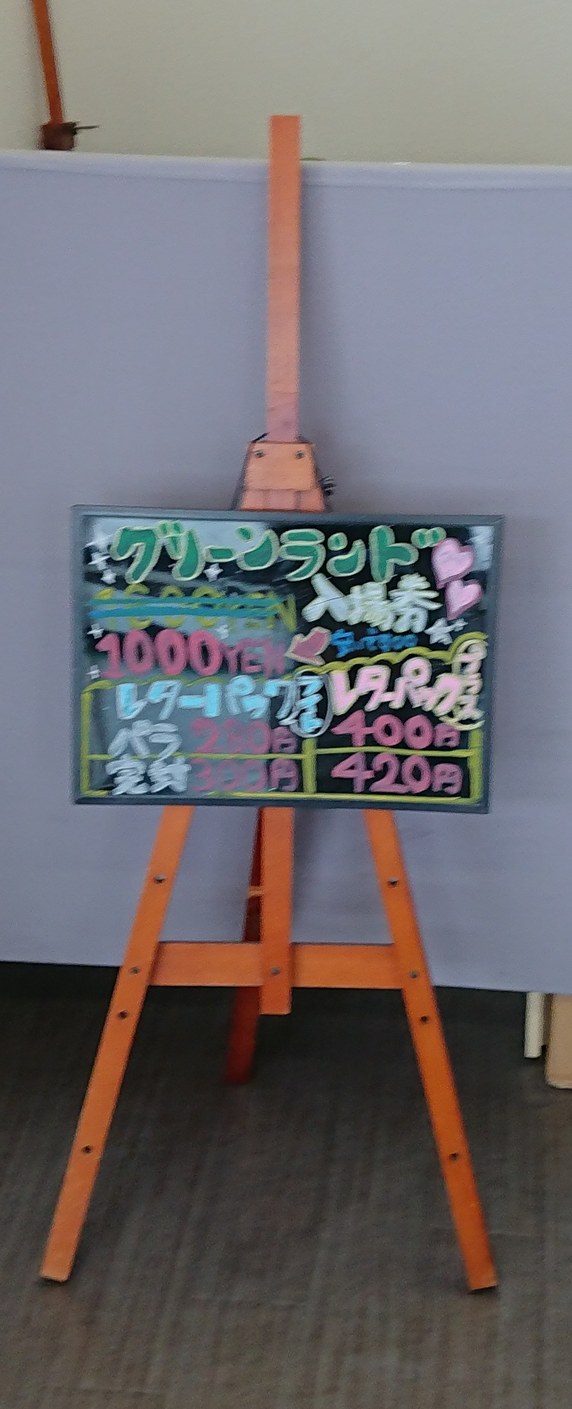 グリーンランド
入場券
1000YEN
レターパックライト レターパックプラス
バラ 280円 400円
完封 300円 420円